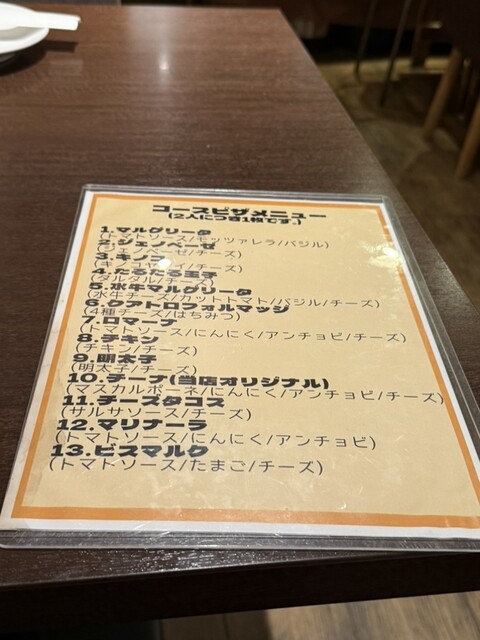 コースピザメニュー
(2人につき1枚です。)
1.マルゲリータ
(トマトソース/モッツァレラ/バジル)
2.ジェノベーゼ
(ジェノベーゼ/チーズ)
3.キノコ
(キノコ/チーズ)
4.たるたる玉子
(タルタル/チーズ)
5.水牛マルゲリータ
(水牛チーズ/カットトマト/バジル/チーズ)
6.クアトロフォルマッジ
(4種チーズ/はちみつ)
7.ロマーナ
(トマトソース/にんにく/アンチョビ/チーズ)
8.チキン
(チキン/チーズ)
9.明太子
(明太子/チーズ)
10.チーナ(当店オリジナル)
(マスカルポーネ/にんにく/アンチョビ/チーズ)
11.チーズタコス
(サルサソース/チーズ)
12.マリナーラ
(トマトソース/にんにく/アンチョビ)
13.ビスマルク
(トマトソース/たまご/チーズ)